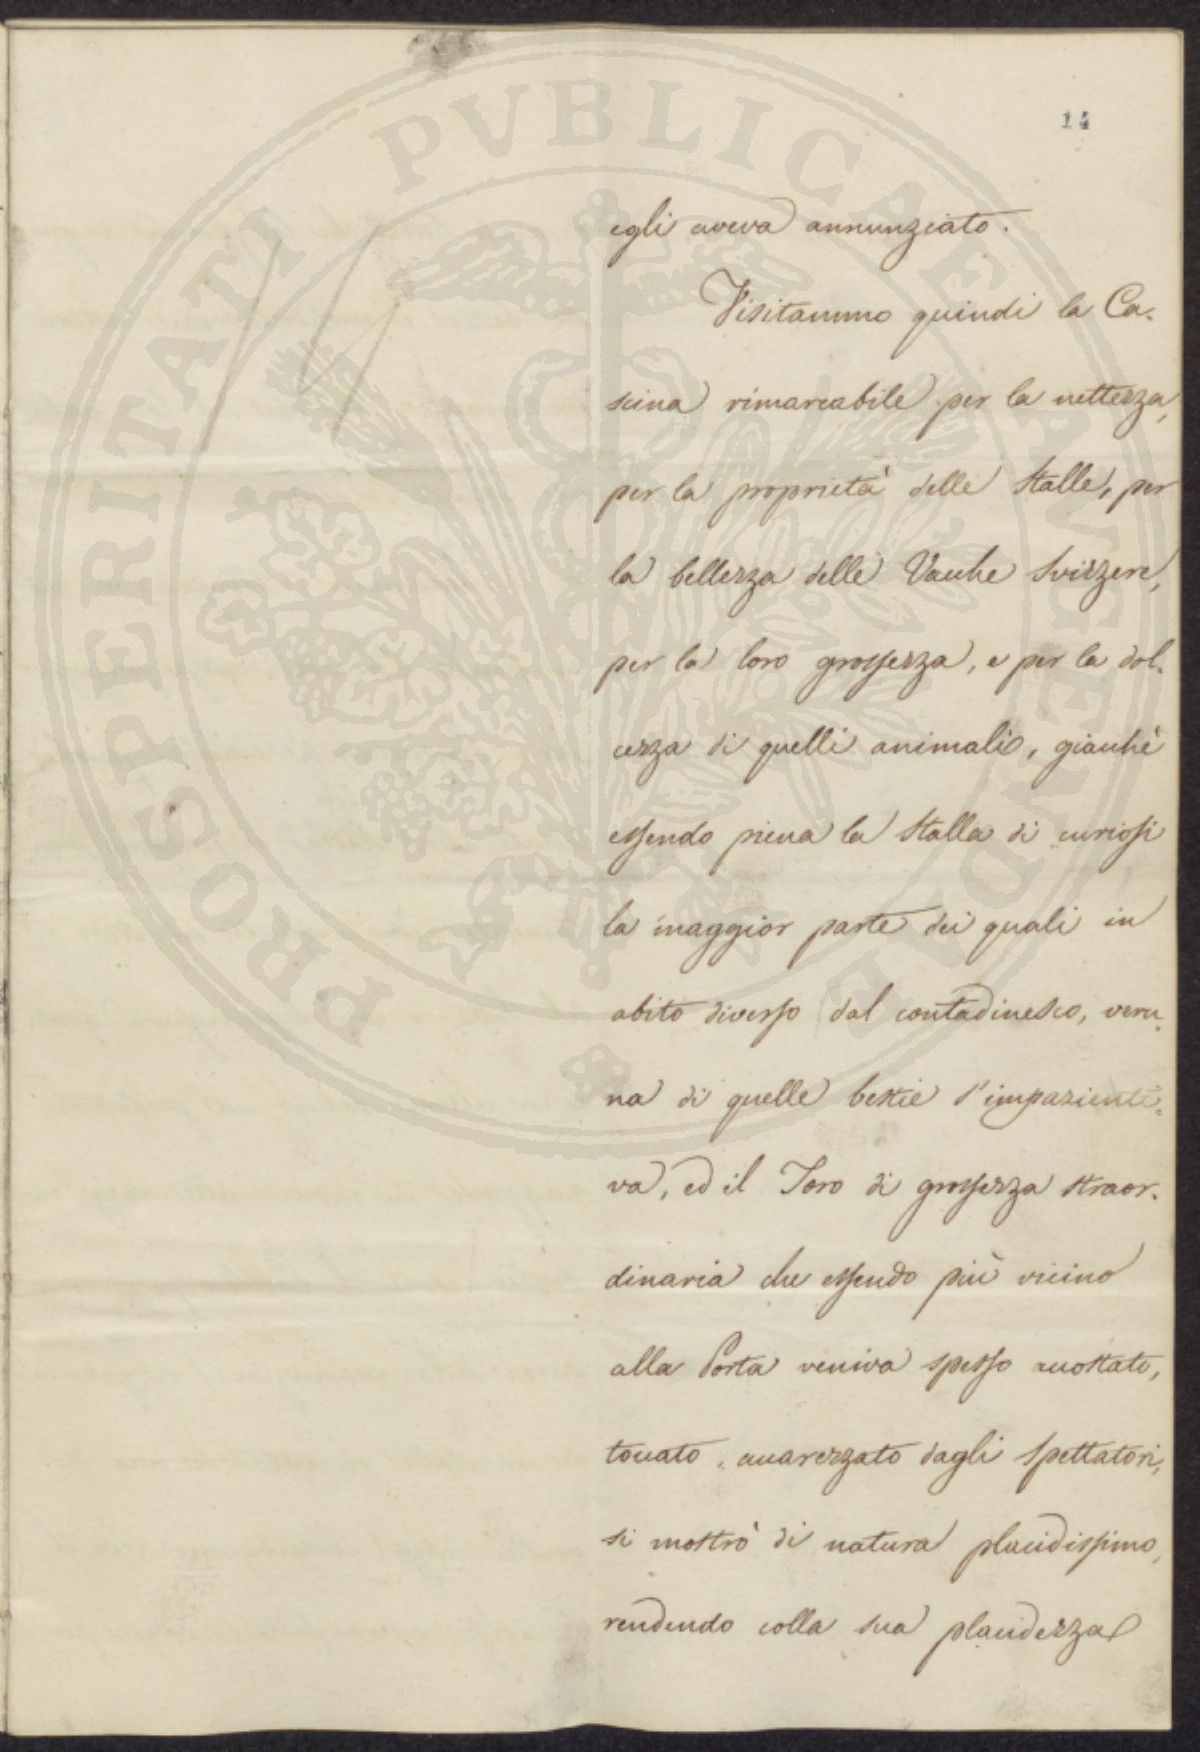 PROSPERITATI PVBLICAE AVGENDAE
14
egli aveva annunziato.
Visitammo quindi la Ca-
scina rimarcabile per la nettezza,
per la proprietà delle Stalle, per
la bellezza delle Vacche Svizzere,
per la loro grossezza, e per la dol-
cezza di quelli animali, giacchè
essendo piena la Stalla di curiosi
la maggior parte dei quali in
abito diverso dal contadinesco, veru-
na di quelle bestie s'impazienti-
va, ed il Toro di grossezza straor-
dinaria che essendo più vicino
alla Porta veniva spesso accostato,
toccato, accarezzato dagli Spettatori,
si mostrò di natura placidissimo,
rendendo colla sua placidezza